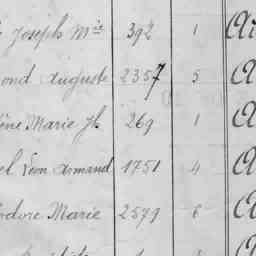 Joseph Mie 392 1
ond Auguste 2357 5
ène Marie Jh 269 1
el Léon Armand 1751 4
odore Marie 2579 6